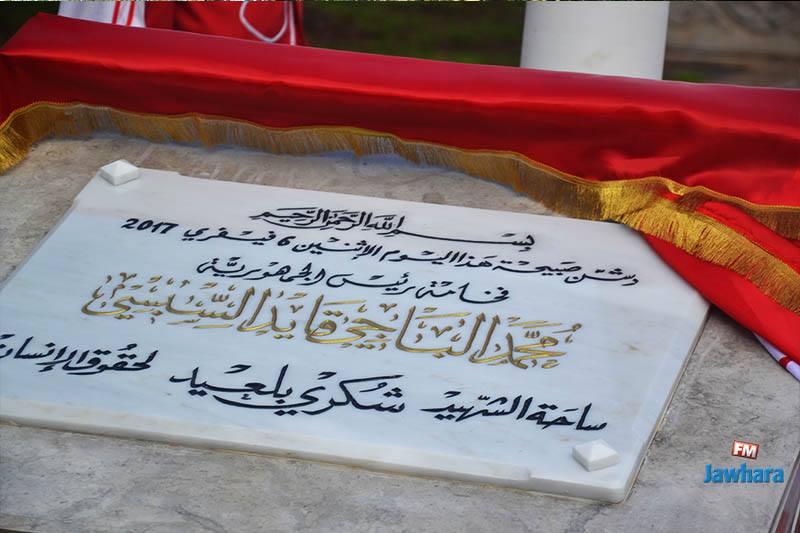 بسم الله الرحمن الرحيم
دشن صبيحة هذا اليوم الإثنين 6 فيفري 2017
فخامة رئيس الجمهورية
محمد الباجي قايد السبسي
ساحة الشهيد شكري بلعيد لحقوق الإنسان
FM
Jawhara